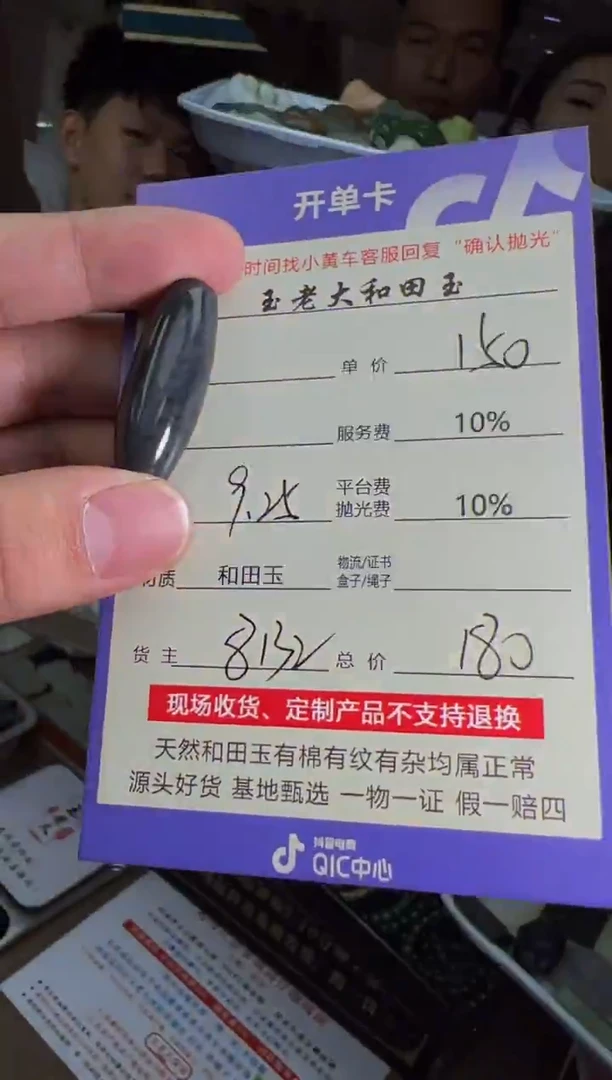 开单卡
时间找小黄车客服回复“确认抛光”
玉老大和田玉
单价 150
服务费 10%
9.25 平台费 抛光费 10%
材质 和田玉 物流/证书 盒子/绳子
货主 8132 总价 180
现场收货、定制产品不支持退换
天然和田玉有棉有纹有杂均属正常
源头好货 基地甄选 一物一证 假一赔四
抖音电商
QIC中心